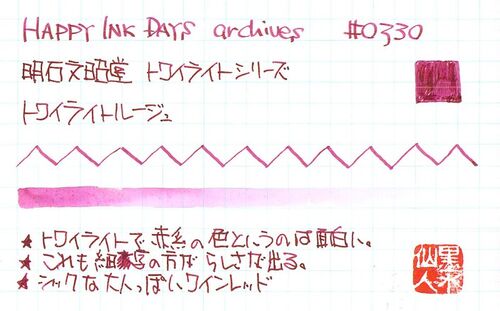 HAPPY INK DAYS archives #0330
明石文昭堂 トワイライトシリーズ
トワイライトルージュ
★ トワイライトで赤系の色というのは面白い。
★ これも細字の方がらしさが出る。
★ シックな大人っぽいワインレッド
仙人